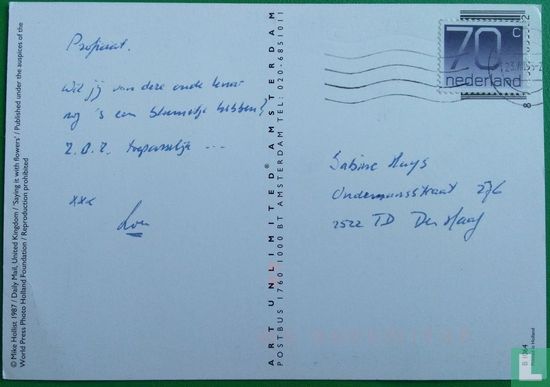 Proficiat.
Wil jij van deze oude
nog 's een bloemetje hebben?
Z.O.Z. toepasselijk ...
xxx
© Mike Hollist 1987 / Daily Mail, United Kingdom / 'Saying it with flowers' / Published under the auspices of the
World Press Photo Holland Foundation / Reproduction prohibited
ART UNLIMITED® AMSTERDAM
POSTBUS 1760 1000 BT AMSTERDAM TEL: 020-6851011
70 c
nederland
Sabine
2522 TD Den Haag
Printed in Holland